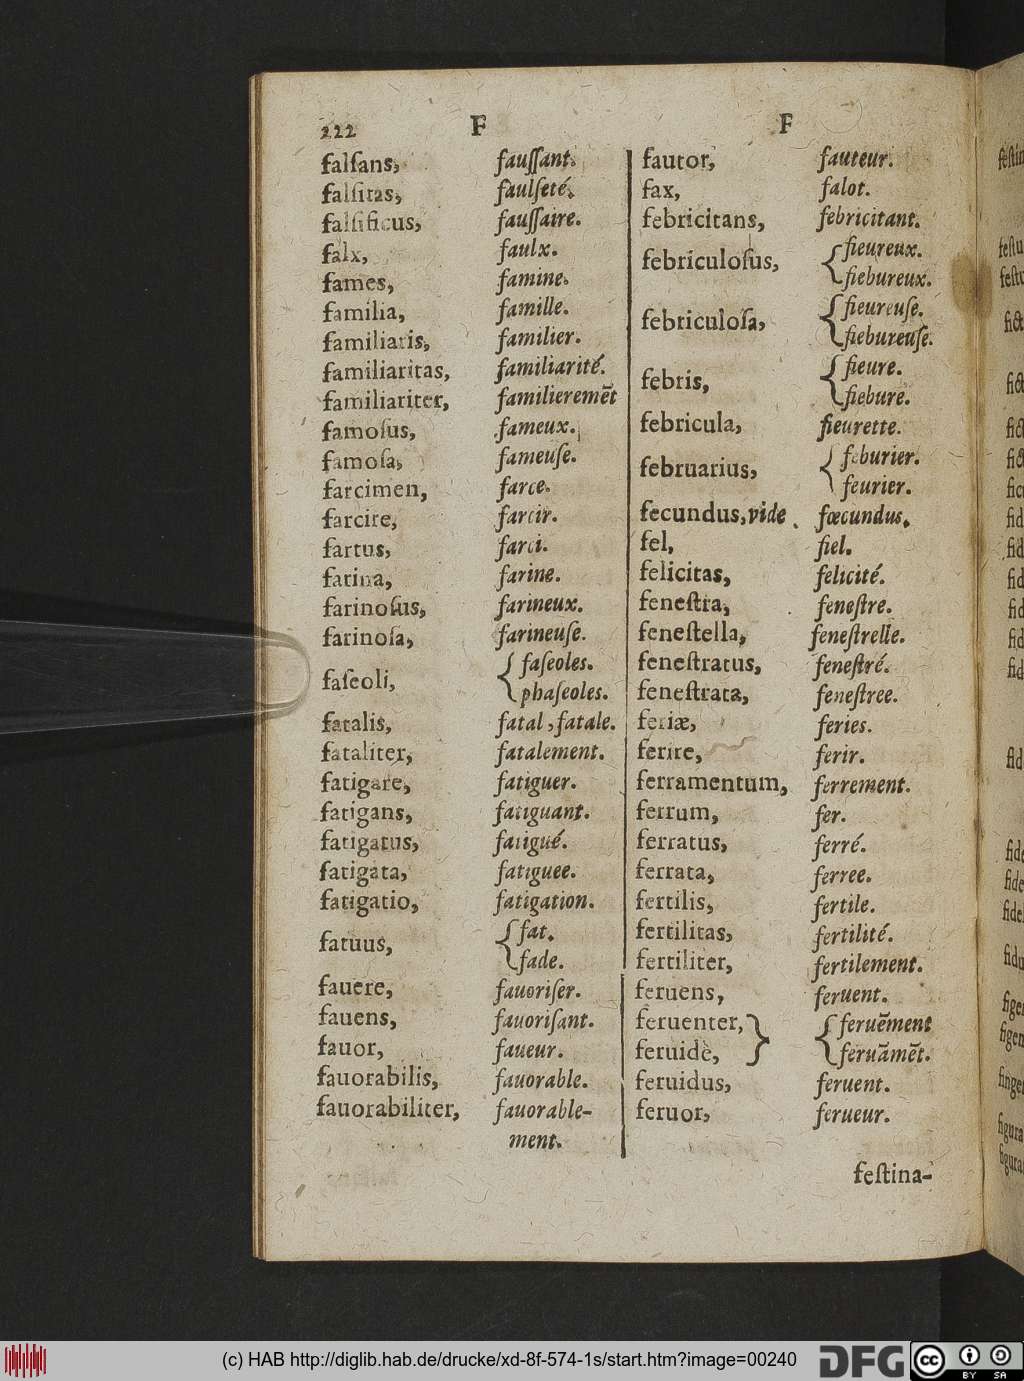 222 F F
falſans, fauſſant.
falſitas, faulſeté.
falſificus, fauſſaire.
falx, faulx.
fames, famine.
familia, famille.
familiaris, familier.
familiaritas, familiarité.
familiariter, familieremẽt
famoſus, fameux.
famoſa, fameuſe.
farcimen, farce.
farcire, farcir.
fartus, farci.
farina, farine.
farinoſus, farineux.
farinoſa, farineuſe.
faſeoli, { faſeoles.
phaſeoles.
fatalis, fatal, fatale.
fataliter, fatalement.
fatigare, fatiguer.
fatigans, fatiguant.
fatigatus, fatigué.
fatigata, fatiguee.
fatigatio, fatigation.
fatuus, { fat.
fade.
fauere, fauoriſer.
fauens, fauoriſant.
fauor, faueur.
fauorabilis, fauorable.
fauorabiliter, fauorable-
ment.
fautor, fauteur.
fax, falot.
febricitans, febricitant.
febriculoſus, { fieureux.
fiebureux.
febriculoſa, { fieureuſe.
fiebureuſe.
febris, { fieure.
fiebure.
febricula, fieurette.
februarius, { feburier.
feurier.
fecundus, vide fœcundus.
fel, fiel.
felicitas, felicité.
feneſtra, feneſtre.
feneſtella, feneſtrelle.
feneſtratus, feneſtré.
feneſtrata, feneſtree.
feriæ, feries.
ferire, ferir.
ferramentum, ferrement.
ferrum, fer.
ferratus, ferré.
ferrata, ferree.
fertilis, fertile.
fertilitas, fertilité.
fertiliter, fertilement.
feruens, feruent.
feruenter, } { feruẽment
feruidè, feruãmẽt.
feruidus, feruent.
feruor, ferueur.
feſtina-
(c) HAB http://diglib.hab.de/drucke/xd-8f-574-1s/start.htm?image=00240 DFG cc BY SA